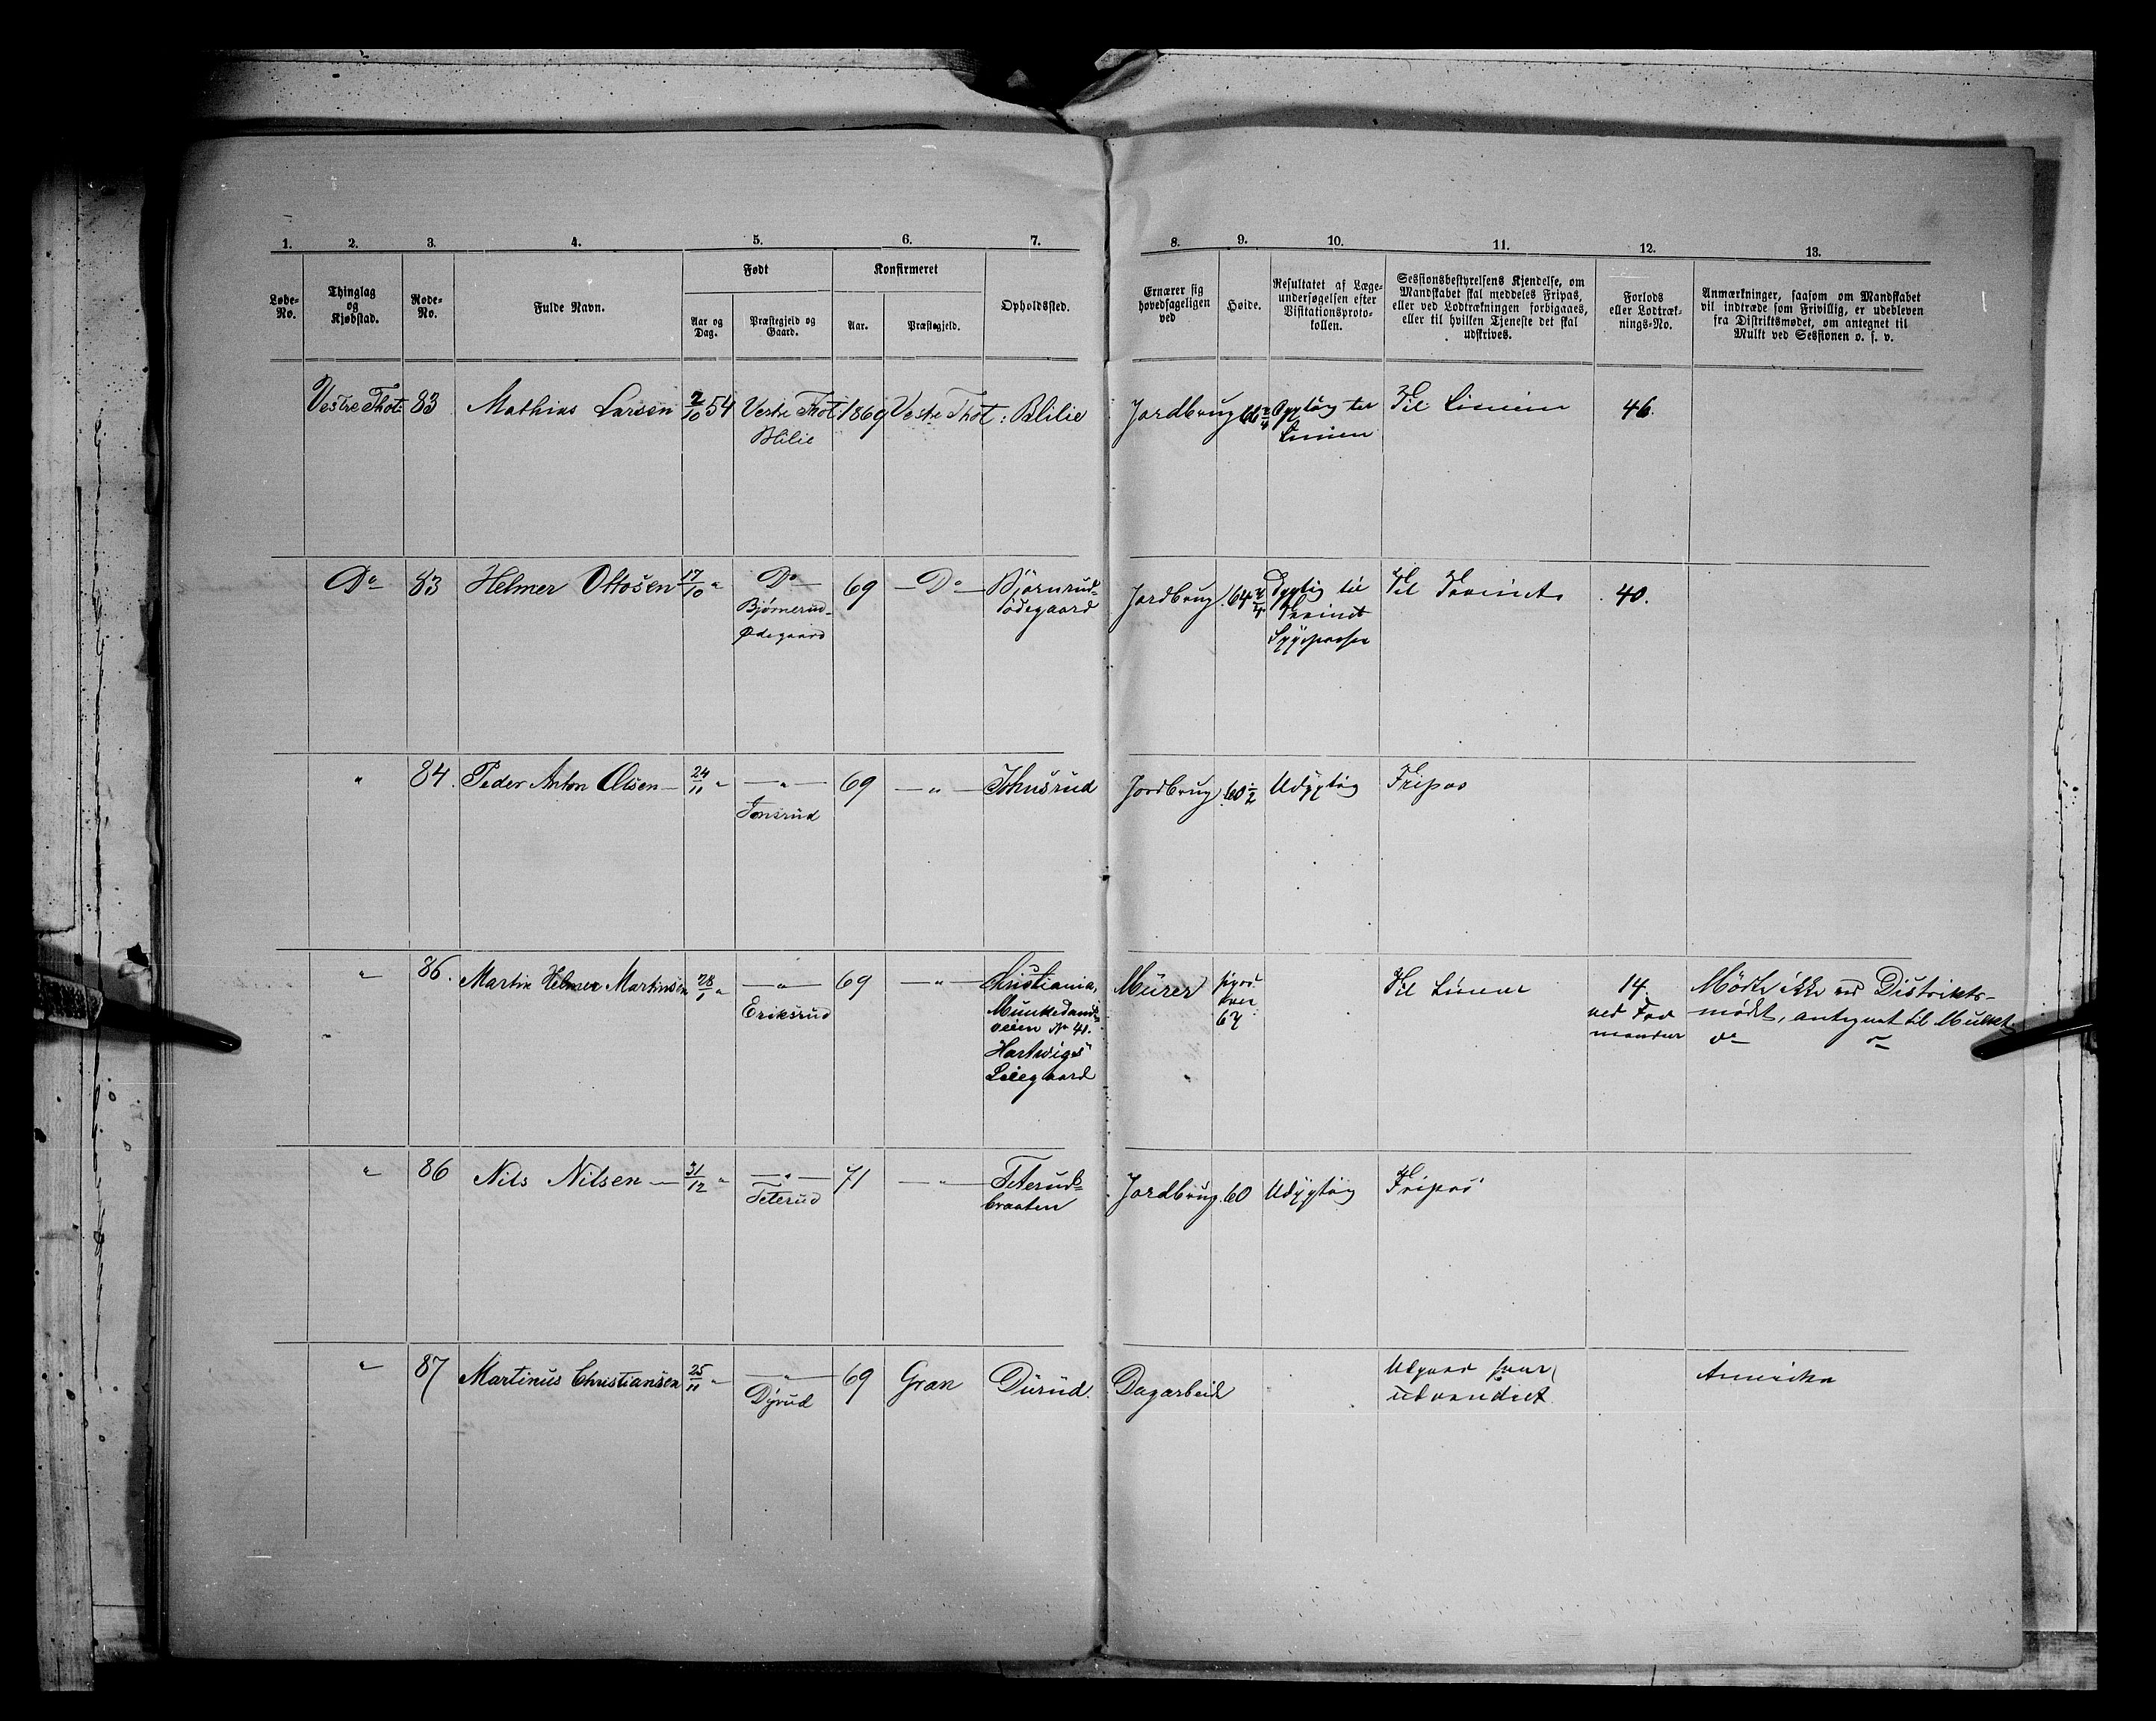 1. 2. 3. 4. 5. 6. 7. 8. 9. 10. 11. 12. 13.
Løbe-No.
Thinglag og Kjøbstad.
Rode-No.
Fulde Navn.
Født
Aar og Dag.
Præstegjeld og Gaard.
Konfirmeret
Aar.
Præstegjeld.
Opholdssted.
Ernærer sig hovedsageligen ved
Høide.
Resultatet af Læge-
undersøgelsen efter
Visitationsproto-
kollen.
Sessionsbestyrelsens Kjendelse, om
Mandskabet skal meddeles Fripas,
eller ved Lodtrækningen forbigaaes,
eller til hvilken Tjeneste det skal
udskrives.
Forlods
eller Lodtræk-
nings-No.
Anmærkninger, saasom om Mandskabet
vil indtræde som Frivillig, er udebleven
fra Distriktsmødet, om antegnet til
Mulkt ved Sessionen o. s. v.
Vestre Thot: 83 Mathias Larsen 2/10 54 Vestre Thot: 1869 Vestre Thot: Blilie Jordbrug Dygtig til Til Linien 46.
Blilie Linien
Do 83 Helmer Ottosen 17/10 " Do 69 Do Bjørnrud- Jordbrug 64 Dygtig til Til Trainet 40.
Bjørnerud- ødegaard Trainet
Ødegaard Sygepasser
" 84. Peder Anton Olsen 24/11 " — " — 69 — " — Johnsrud Jordbrug 60 1/2 Udygtig Fripas
Jonsrud
" 86. Martin Helmer Martinsen 28/1 " — " — 69 — " — Christiania, Murer Til Linien 14. Mødte ikke ved Distrikts-
Eriksrud Munkedams- ved For mødet, antegnet til Mulkt
veien No 41. 67
Hartwigs
Leiegaard
" 86 Nils Nilsen 31/12 " — " — 71 — " — Teteruds- Jordbrug 60 Udygtig Fripas
Teterud braaten
" 87 Martinus Christiansen 25/11 " — " — 69 Gran Dürud. Dagarbeid Udgaar som Amerika
Dyrud udvandret